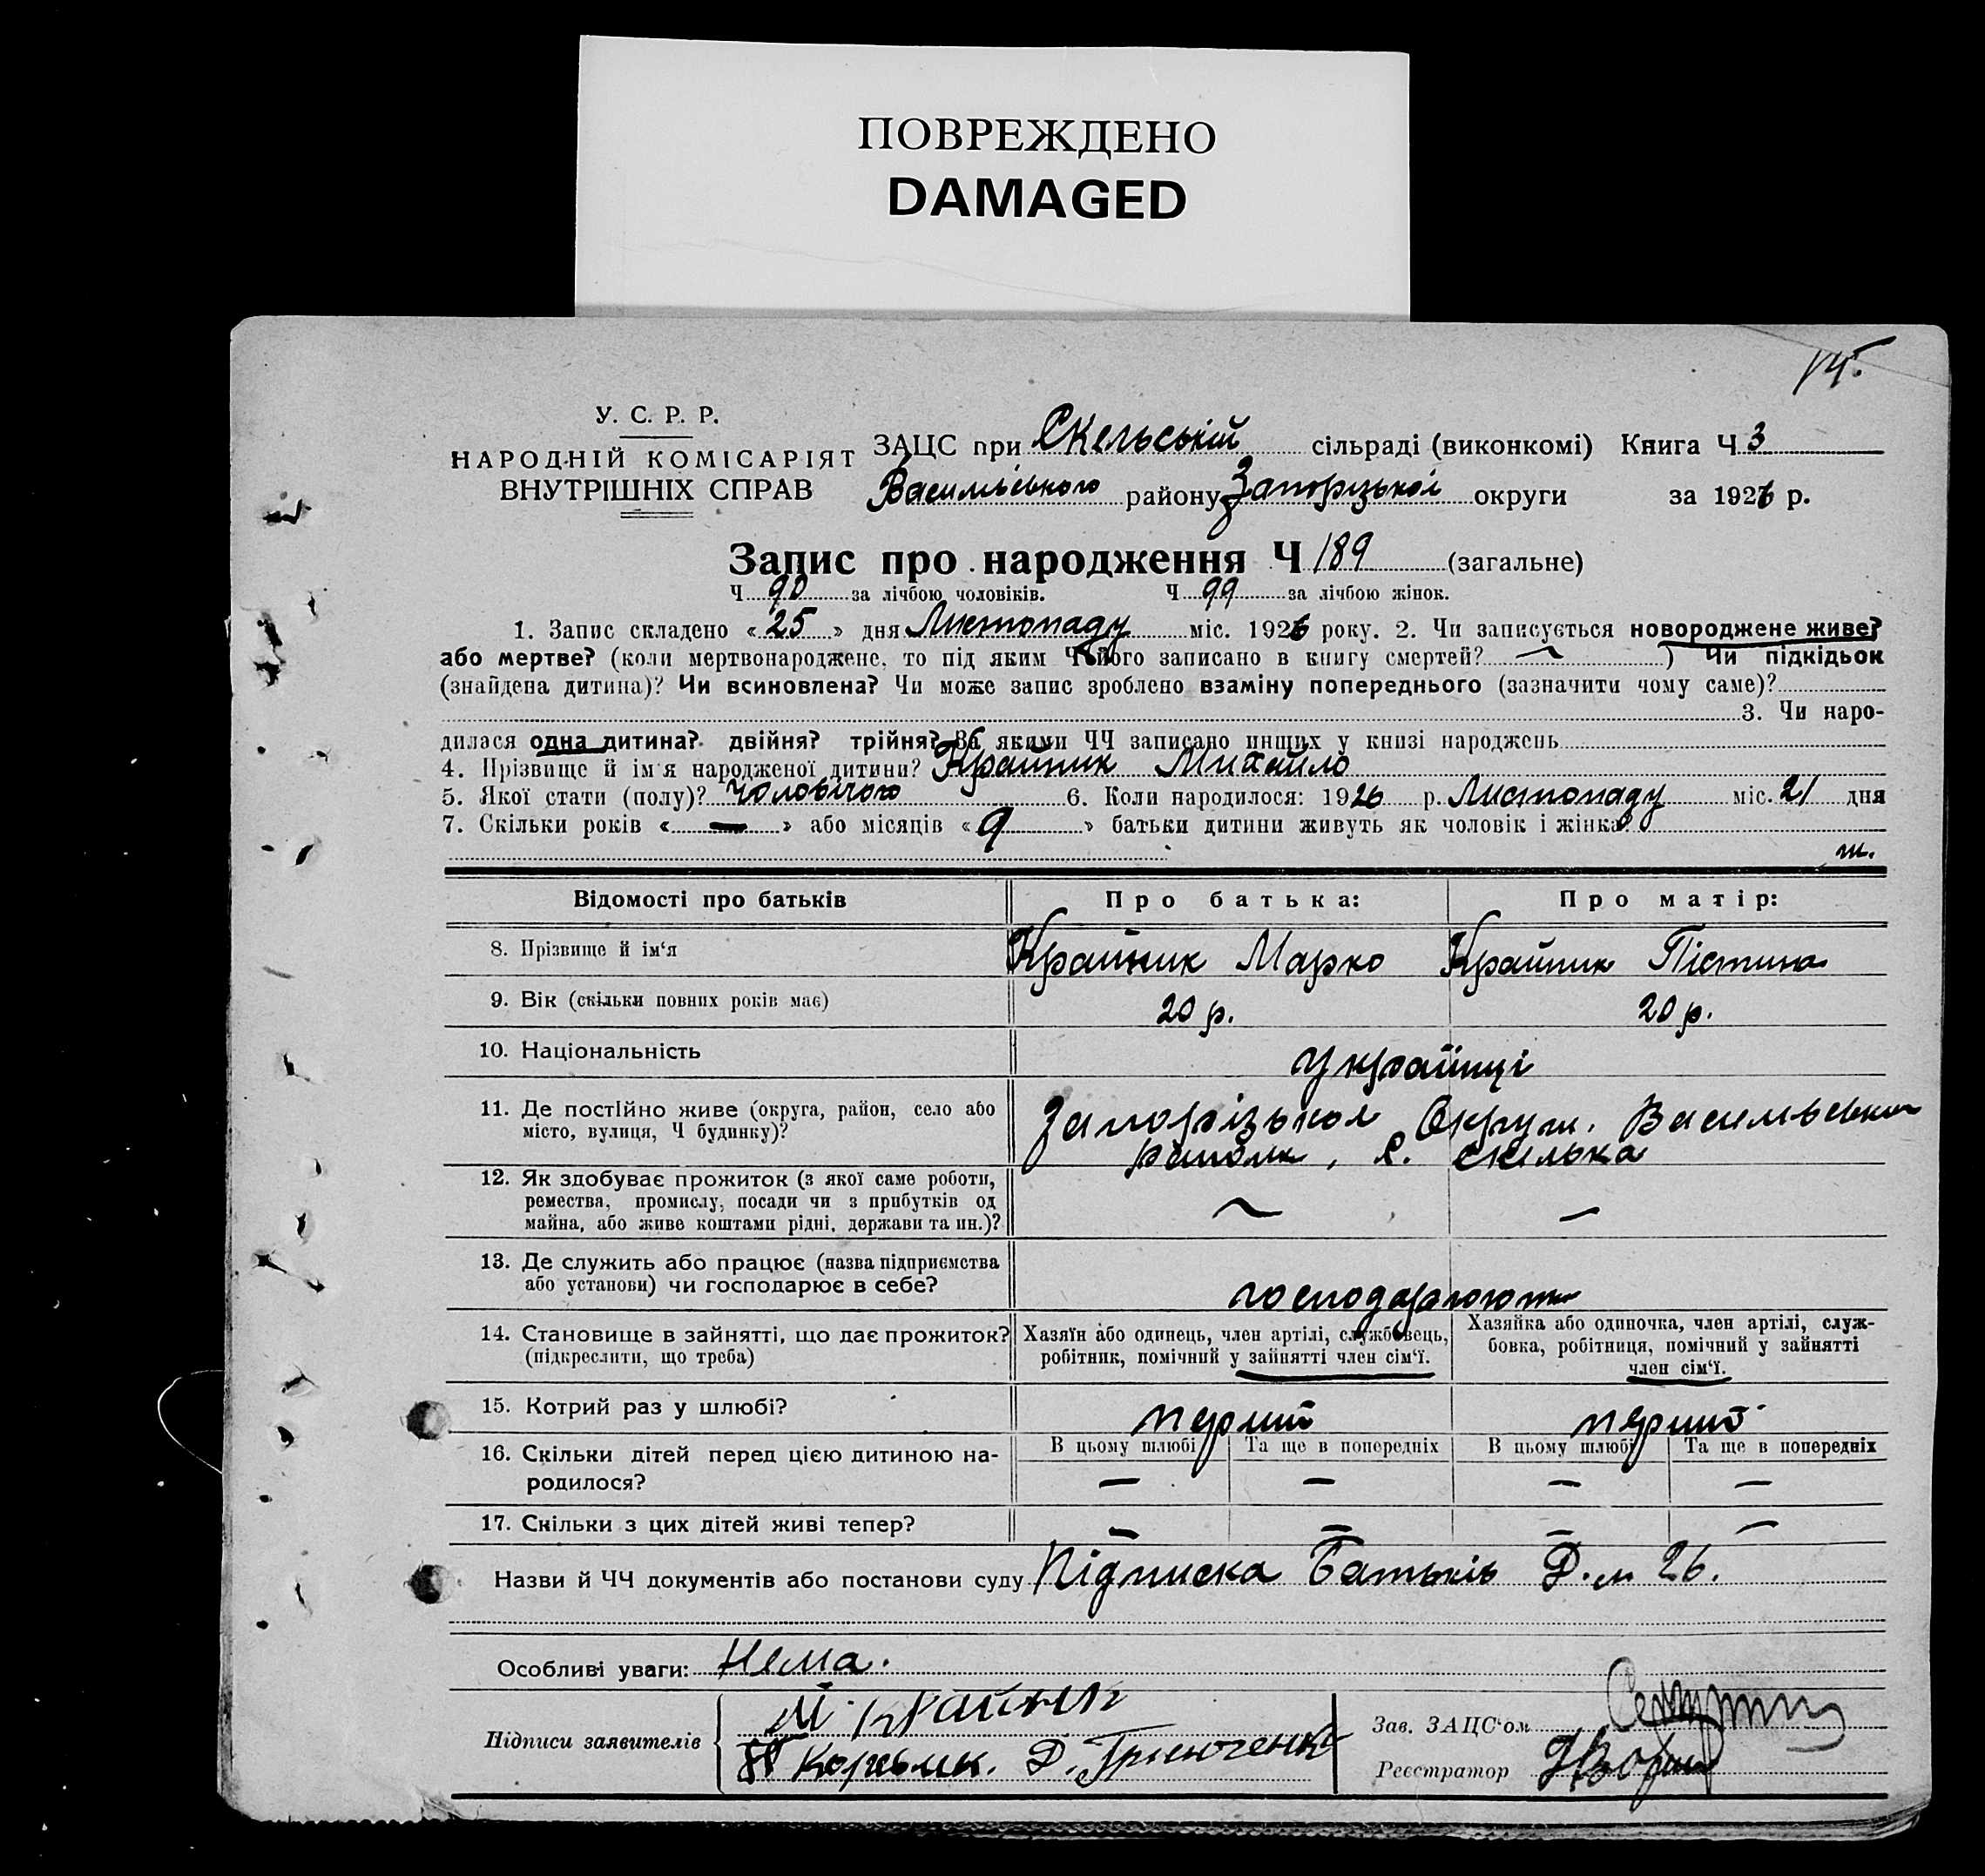 ПОВРЕЖДЕНО
DAMAGED
У. С. Р. Р.
НАРОДНІЙ КОМІСАРІЯТ
ВНУТРІШНІХ СПРАВ
ЗАЦС при Скельській сільраді (виконкомі) Книга Ч 3
Васильівського району Запорізької округи за 1926 р.
Запис про народження Ч 189 (загальне)
Ч 90 за лічбою чоловіків. Ч 99 за лічбою жінок.
1. Запис складено «25» дня Листопаду міс. 1926 року. 2. Чи записується новороджене живе?
або мертве? (коли мертвонароджене, то під яким Ч його записано в книгу смертей? ) Чи підкідьок
(знайдена дитина)? Чи всиновлена? Чи може запис зроблено взаміну попереднього (зазначити чому саме)?
3. Чи наро-
дилася одна дитина? двійня? трійня? За якими ЧЧ записано инших у книзі народжень
4. Прізвище й ім'я народженої дитини? Крайник Михайло
5. Якої стати (полу)? чоловічого 6. Коли народилося: 1926 р. Листопаду міс. 21 дня
7. Скільки років « — » або місяців « 9 » батьки дитини живуть як чоловік і жінка?
Відомості про батьків Про батька: Про матір:
8. Прізвище й ім'я Крайник Марко Крайник Пістина
9. Вік (скільки повних років має) 20 р. 20 р.
10. Національність українці
11. Де постійно живе (округа, район, село або
місто, вулиця, Ч будинку)? Запорізької Округи, Васильевськ
району, с. Скелька
12. Як здобуває прожиток (з якої саме роботи,
ремества, промислу, посади чи з прибутків од
майна, або живе коштами рідні, держави та ин.)?
13. Де служить або працює (назва підприємства
або установи) чи господарює в себе? господарюють
14. Становище в зайнятті, що дає прожиток?
(підкреслити, що треба)
Хазяїн або одинець, член артілі, службовець,
робітник, помічний у зайнятті член сім'ї.
Хазяйка або одиночка, член артілі, служ-
бовка, робітниця, помічний у зайнятті
член сім'ї.
15. Котрий раз у шлюбі? перший перший
16. Скільки дітей перед цією дитиною на-
родилося?
В цьому шлюбі Та ще в попередніх В цьому шлюбі Та ще в попередніх
— — — —
17. Скільки з цих дітей живі тепер? — — — —
Назви й ЧЧ документів або постанови суду Підписка Батьків Д. № 26.
Особливі уваги: Нема.
Підписи заявителів М. Крайник
Д. Гриюченко
Зав. ЗАЦС'ом
Реєстратор